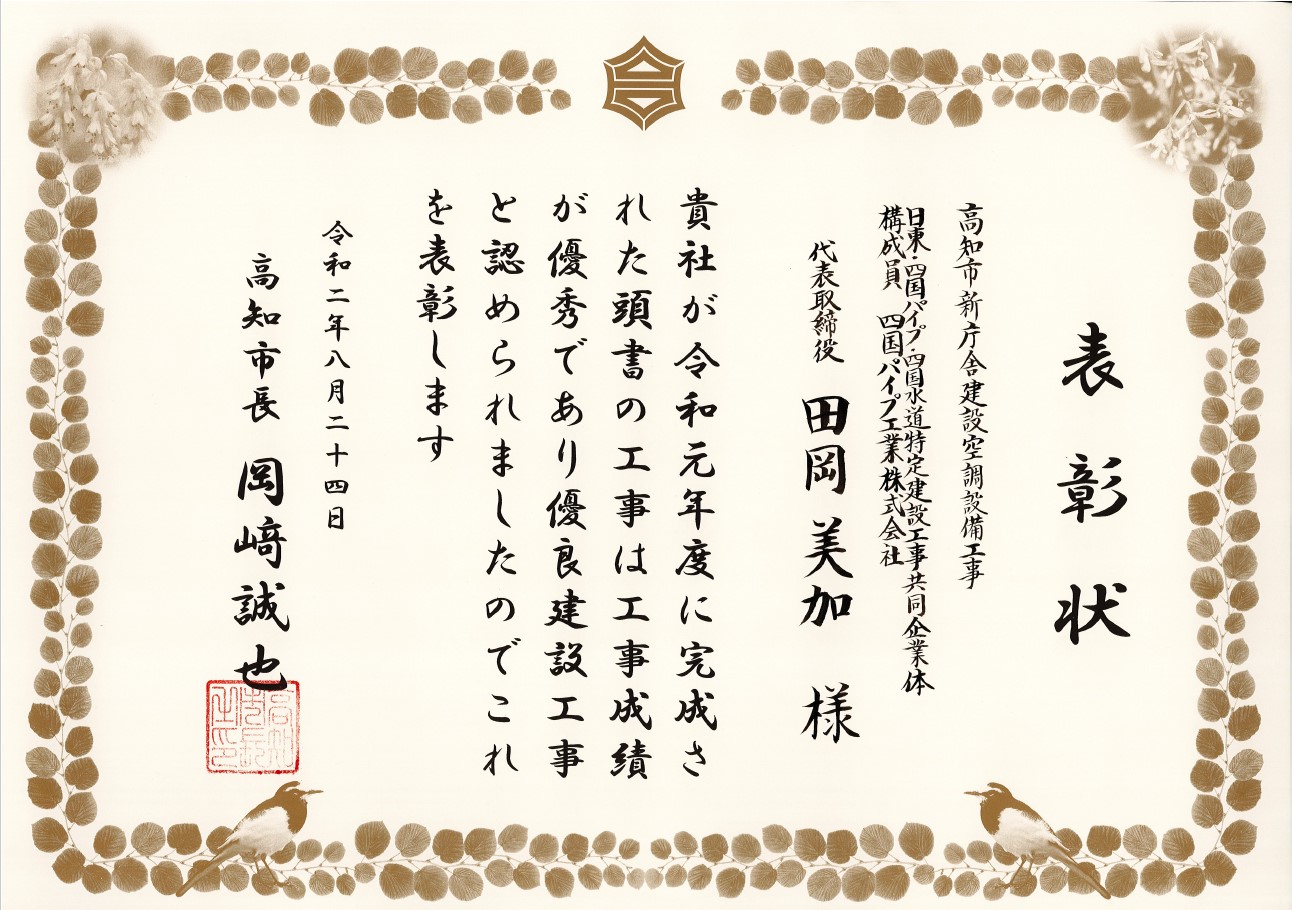 表彰状
高知市新庁舎建設空調設備工事
日東・四国パイプ・四国水道特定建設工事共同企業体
構成員 四国パイプ工業株式会社
代表取締役 田岡美加 様
貴社が令和元年度に完成さ
れた頭書の工事は工事成績
が優秀であり優良建設工事
と認められましたのでこれ
を表彰します
令和二年八月二十四日
高知市長 岡﨑誠也
高知市長之印